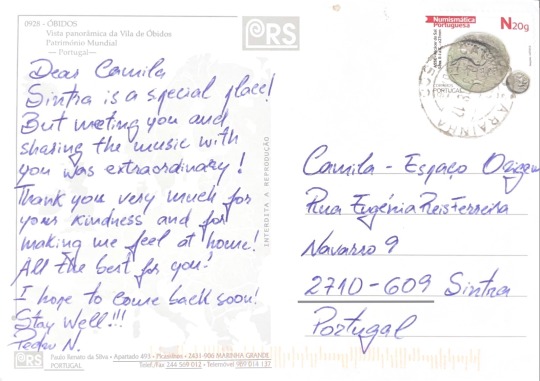 0928 - ÓBIDOS
Vista panorâmica da Vila de Óbidos
Património Mundial
— Portugal —
Dear Camila
Sintra is a special place!
But meeting you and
sharing the music with
you was extraordinary!
Thank you very much for
your kindness and for
making me feel at home!
All the best for you!
I hope to come back soon!
Stay Well!!!
Pedro N.
RS
Paulo Renato da Silva • Apartado 493 • Picassinos • 2431-906 MARINHA GRANDE
PORTUGAL
Telef./Fax 244 569 012 • Telemóvel 969 014 137
RS
INTERDITA A REPRODUÇÃO
Numismática
Portuguesa
N20g
PORTUGAL
Camila - Espaço
Rua Eugénia Reis Ferreira
Navarro 9
2710-609 Sintra
Portugal